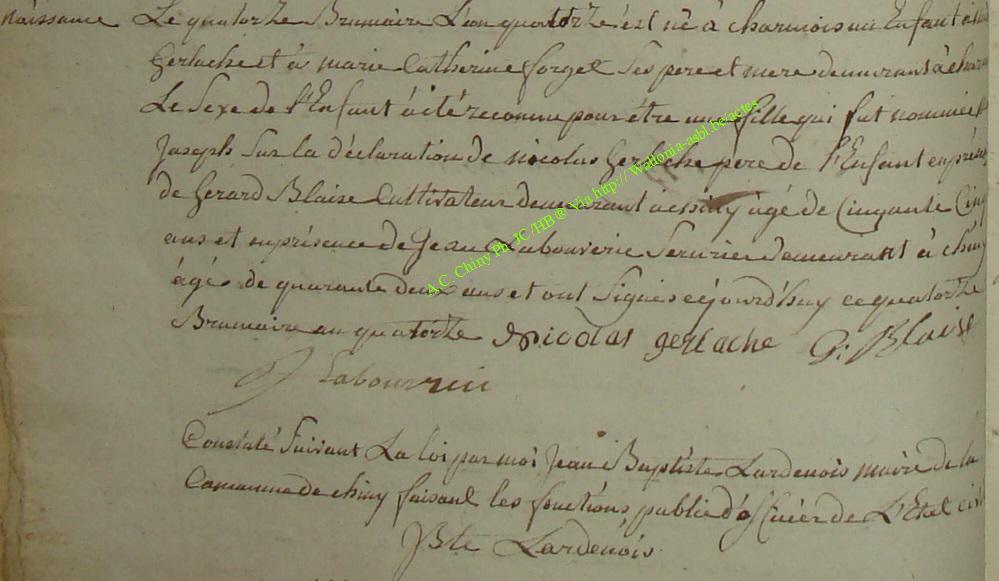 naissance Le quatorze Brumaire L'an quatorze est né à charmois un Enfant à
Gerlache et à marie Catherine forget Ses pere et mere demeurant à char
Le Sexe de l'Enfant à été reconnu pour être une fille qui fut nommée
Joseph Sur la déclaration de nicolas Gerlache pere de l'Enfant en prés
de Gerard Blaise Cultivateur demeurant a chiny âgé de Cinquante Cinq
ans et en présence de Jean Labouverie Serurie demeurant à chiny
âgé de quarante deux ans et ont Signés cejourd'huy ce quatorze
Brumaire an quatorze Nicolas gerlache G. Blaise
J Labouverie
Constaté Suivant La loi par moi Jean Baptiste Lardenois maire de la
Commune de chiny faisant les fonctions public d'officier de L'Etat civil
JBte Lardenois
A.C. Chiny Ph. JC /HB @ Via http:// Wallonia-asbl.be/actes